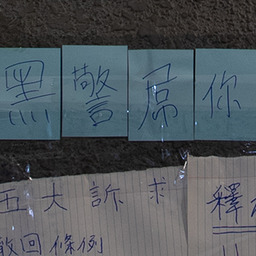 黑警屌你
五大訴求
釋
撤回條例